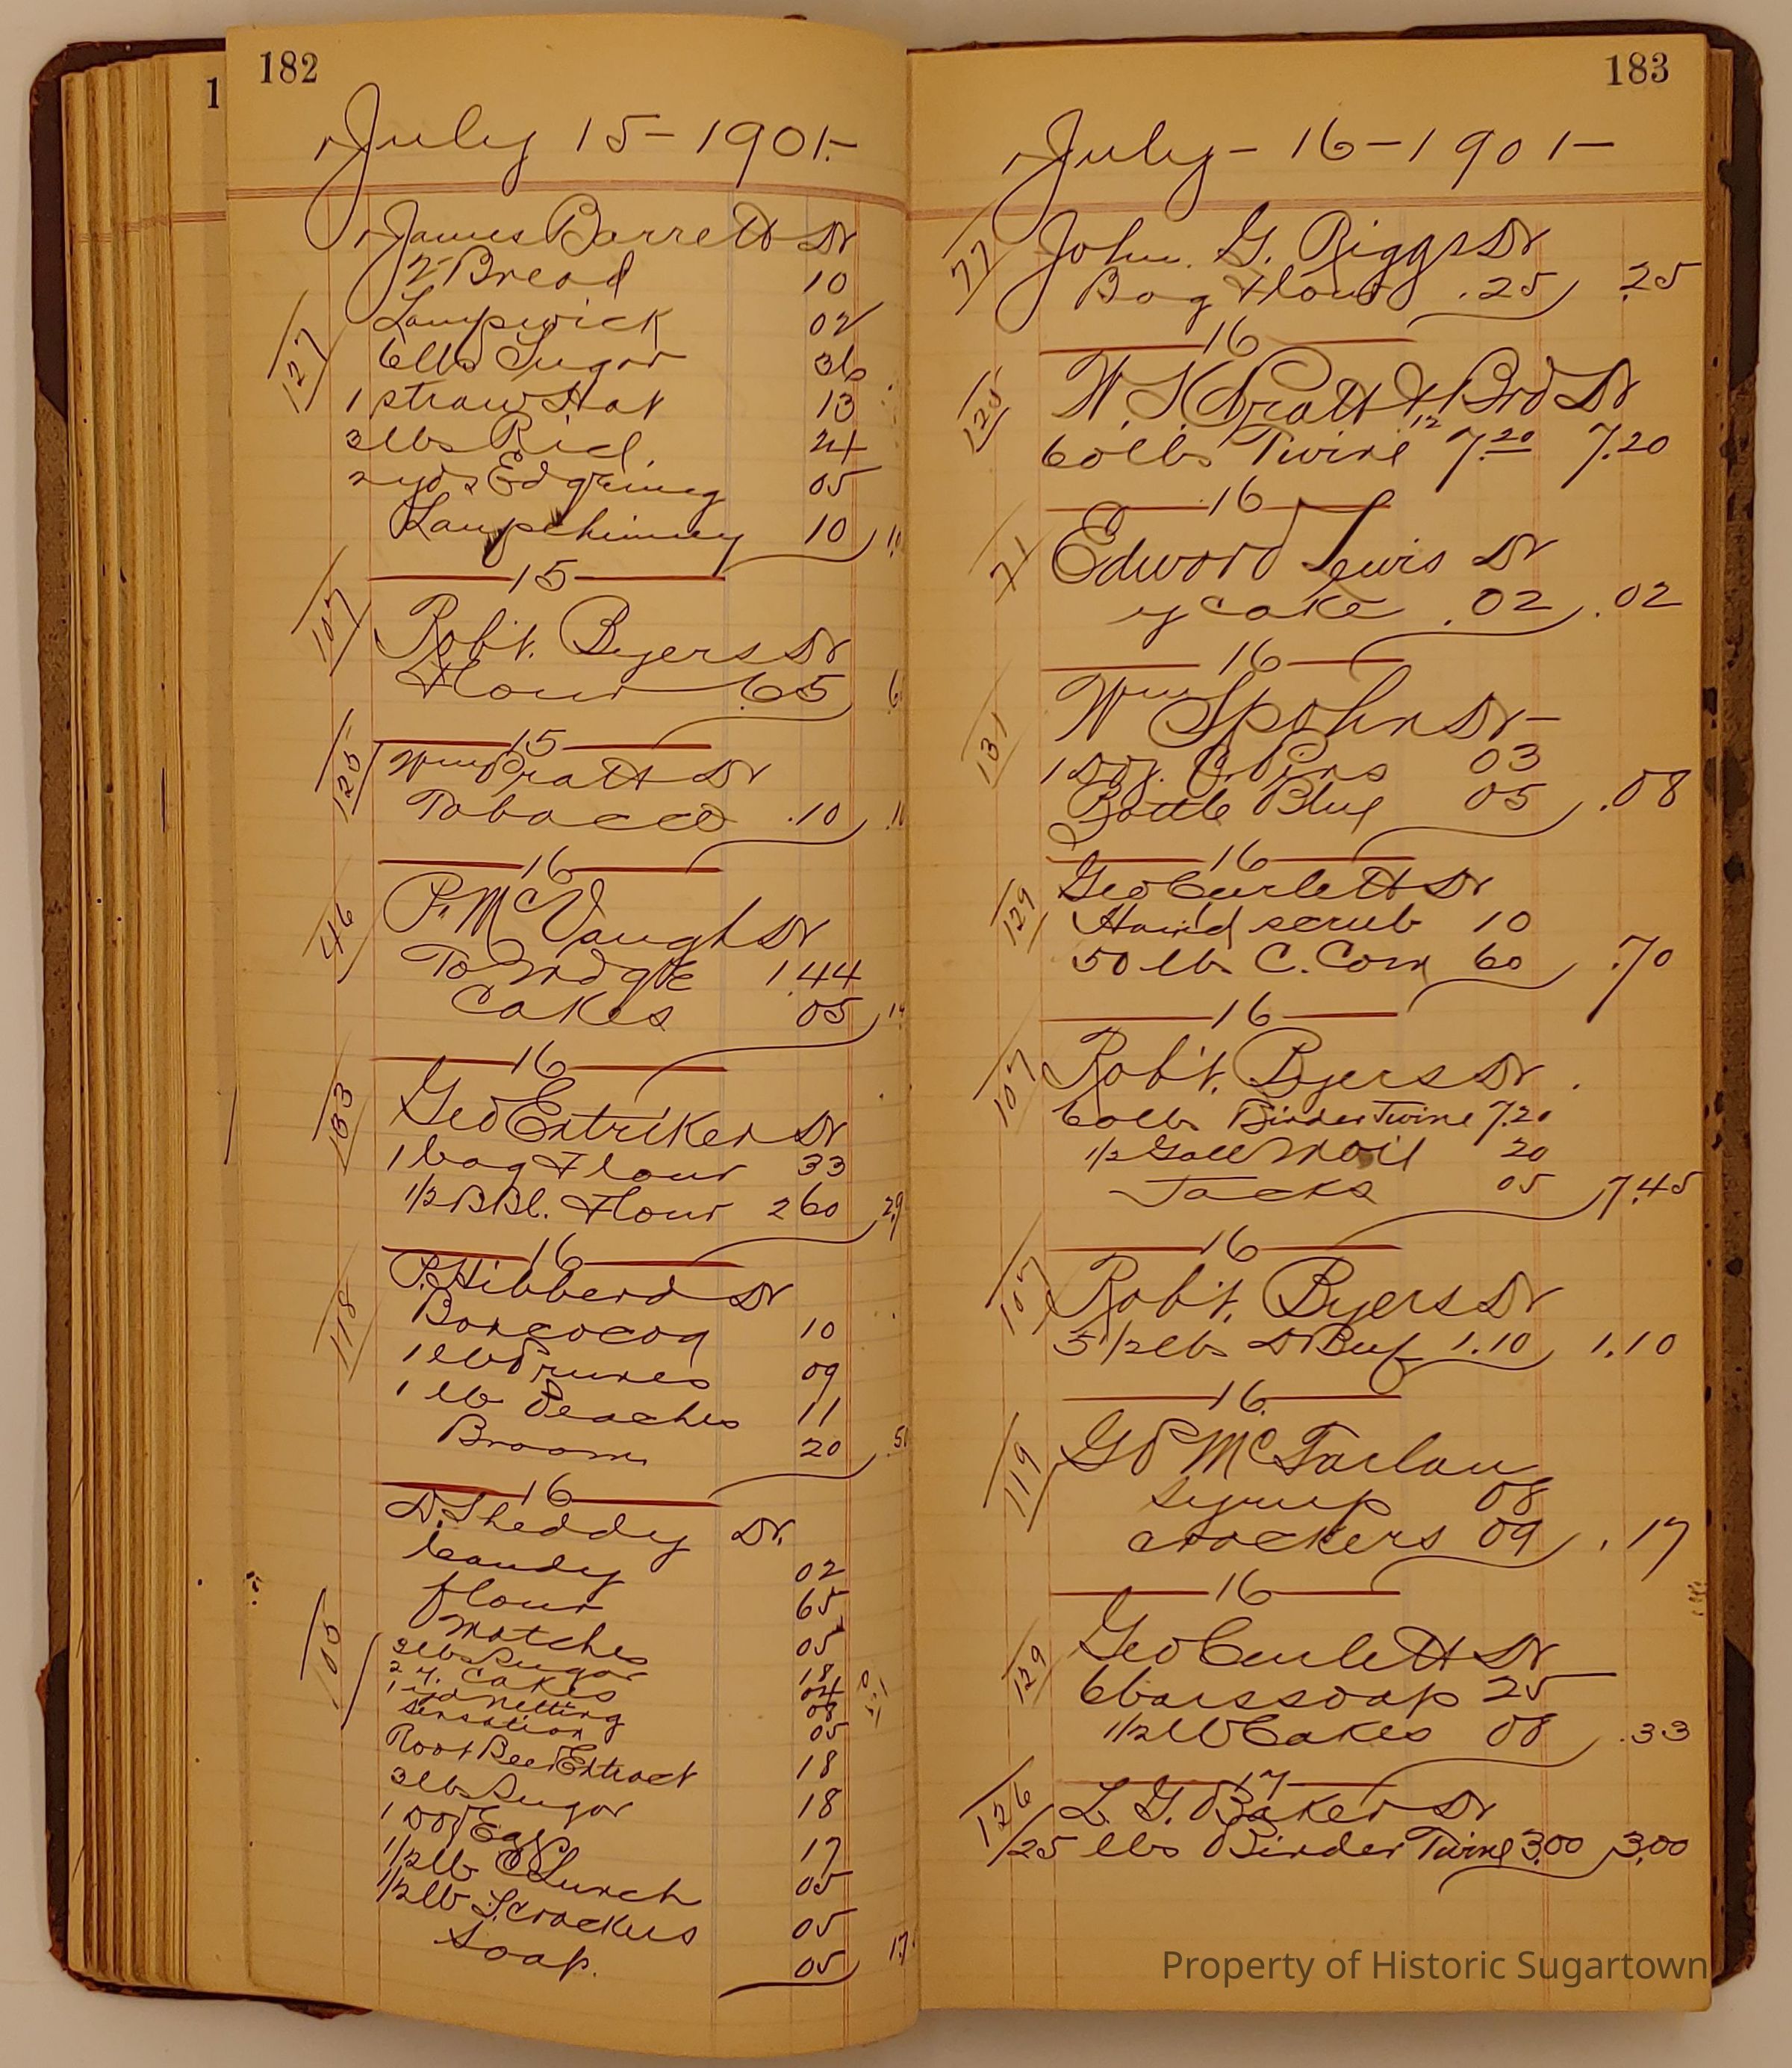 1
182
July 15-1901-
James Barrett Dr
2 Bread 10
127
Lampwick 02
6lbs Sugar 36
1 straw Hat 13
3lbs Rice 24
2 yds Edgeing 05
Lampchimney 10
15
107
Rob't. Byers Dr
Flour .65
15
125
Wm Pratt Dr
Tobacco .10
16
46
P. McVaugh Dr
To Mdge 1.44
Cakes 05
16
133
Geo Entriken Dr
1 bag Flour 33
1/2 BBl. Flour 2 60
16
118
P. Hibberd Dr
Box cocoa 10
1 lb Prunes 09
1 lb Peaches 11
Broom 20
16
D. Sheddy Dr.
Candy 02
flour 65
105
Matches 05
3lbs Sugar 18
2 y. Cakes 04
1 yd netting 08
Sensation 05
Root Beer Extract 18
3lbs Sugar 18
1 Doz Eggs 17
1/2lb C Lunch 05
1/2lb S. crackers 05
Soap. 05
183
July-16-1901-
77
John. G. Riggs Dr
Bag Flour .25 .25
16
125
W. S. Pratt & Bro Dr
60lbs Twine 12 7.20 7.20
16
71
Edward Lewis Dr
y cake .02 .02
16
131
Wm Spohn Dr-
1 Doz. C. Pins 03
Bottle Blue 05 .08
16
129
Geo Curlett Dr
Hand scrub 10
50 lbs C. Corn 60 .70
16
107
Rob't. Byers Dr.
60lbs Binder Twine 7.20
1/2 Gall M oil 20
Tacks 05 7.45
16
107
Rob't. Byers Dr
5 1/2lbs D Beef 1.10 1.10
16
119
G P McFarlan
Syrup 08
crackers 09 .17
16
129
Geo Curlett Dr
6 bars soap 25
1/2 lb Cakes 08 .33
17
126
L. G. Baker Dr
25 lbs Binder Twine 3.00 3.00
Property of Historic Sugartown